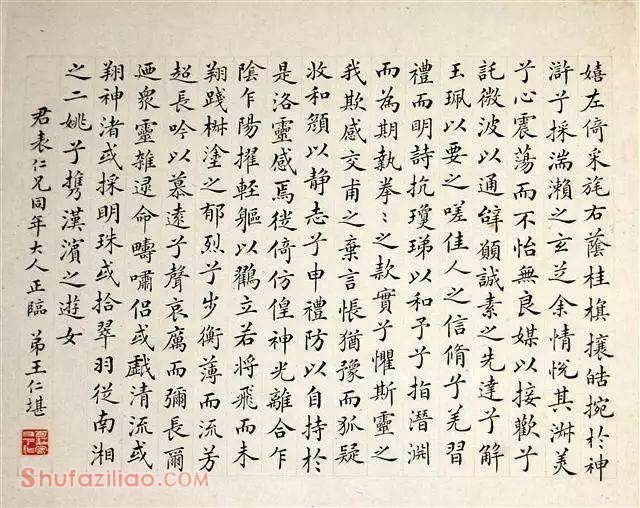 嬉左倚采旄右蔭桂旗攘皓捥於神
滸兮採湍瀨之玄芝余情悅其淑美
兮心震蕩而不怡無良媒以接歡兮
託微波以通辝願誠素之先達兮解
玉珮以要之嗟佳人之信脩兮羌習
禮而明詩抗瓊珶以和予兮指潛淵
而為期執拳〻之款實兮懼斯靈之
我欺感交甫之棄言悵猶豫而狐疑
收和顏以静志兮申禮防以自持於
是洛靈感焉徙倚仿偟神光離合乍
陰乍陽擢輕軀以鸖立若將飛而未
翔踐椒塗之郁烈兮步衡薄而流芳
超長吟以慕遠兮聲哀厲而彌長爾
迺衆靈雜遝命疇嘯侶或戲清流或
翔神渚或採明珠或拾翠羽從南湘
之二姚兮攜漢濱之遊女
君表仁兄同年大人正臨 弟王仁堪
Shufaziliao.com